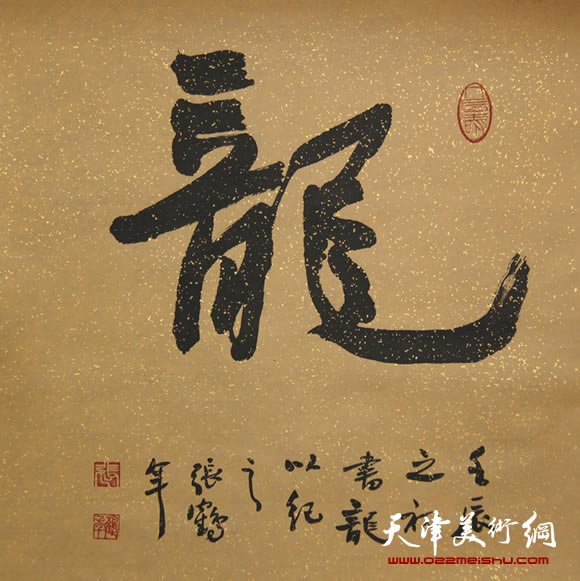 龍
壬辰
之初
書龍
以紀
之
張鶴
年
天津美術網
www.022meishu.com